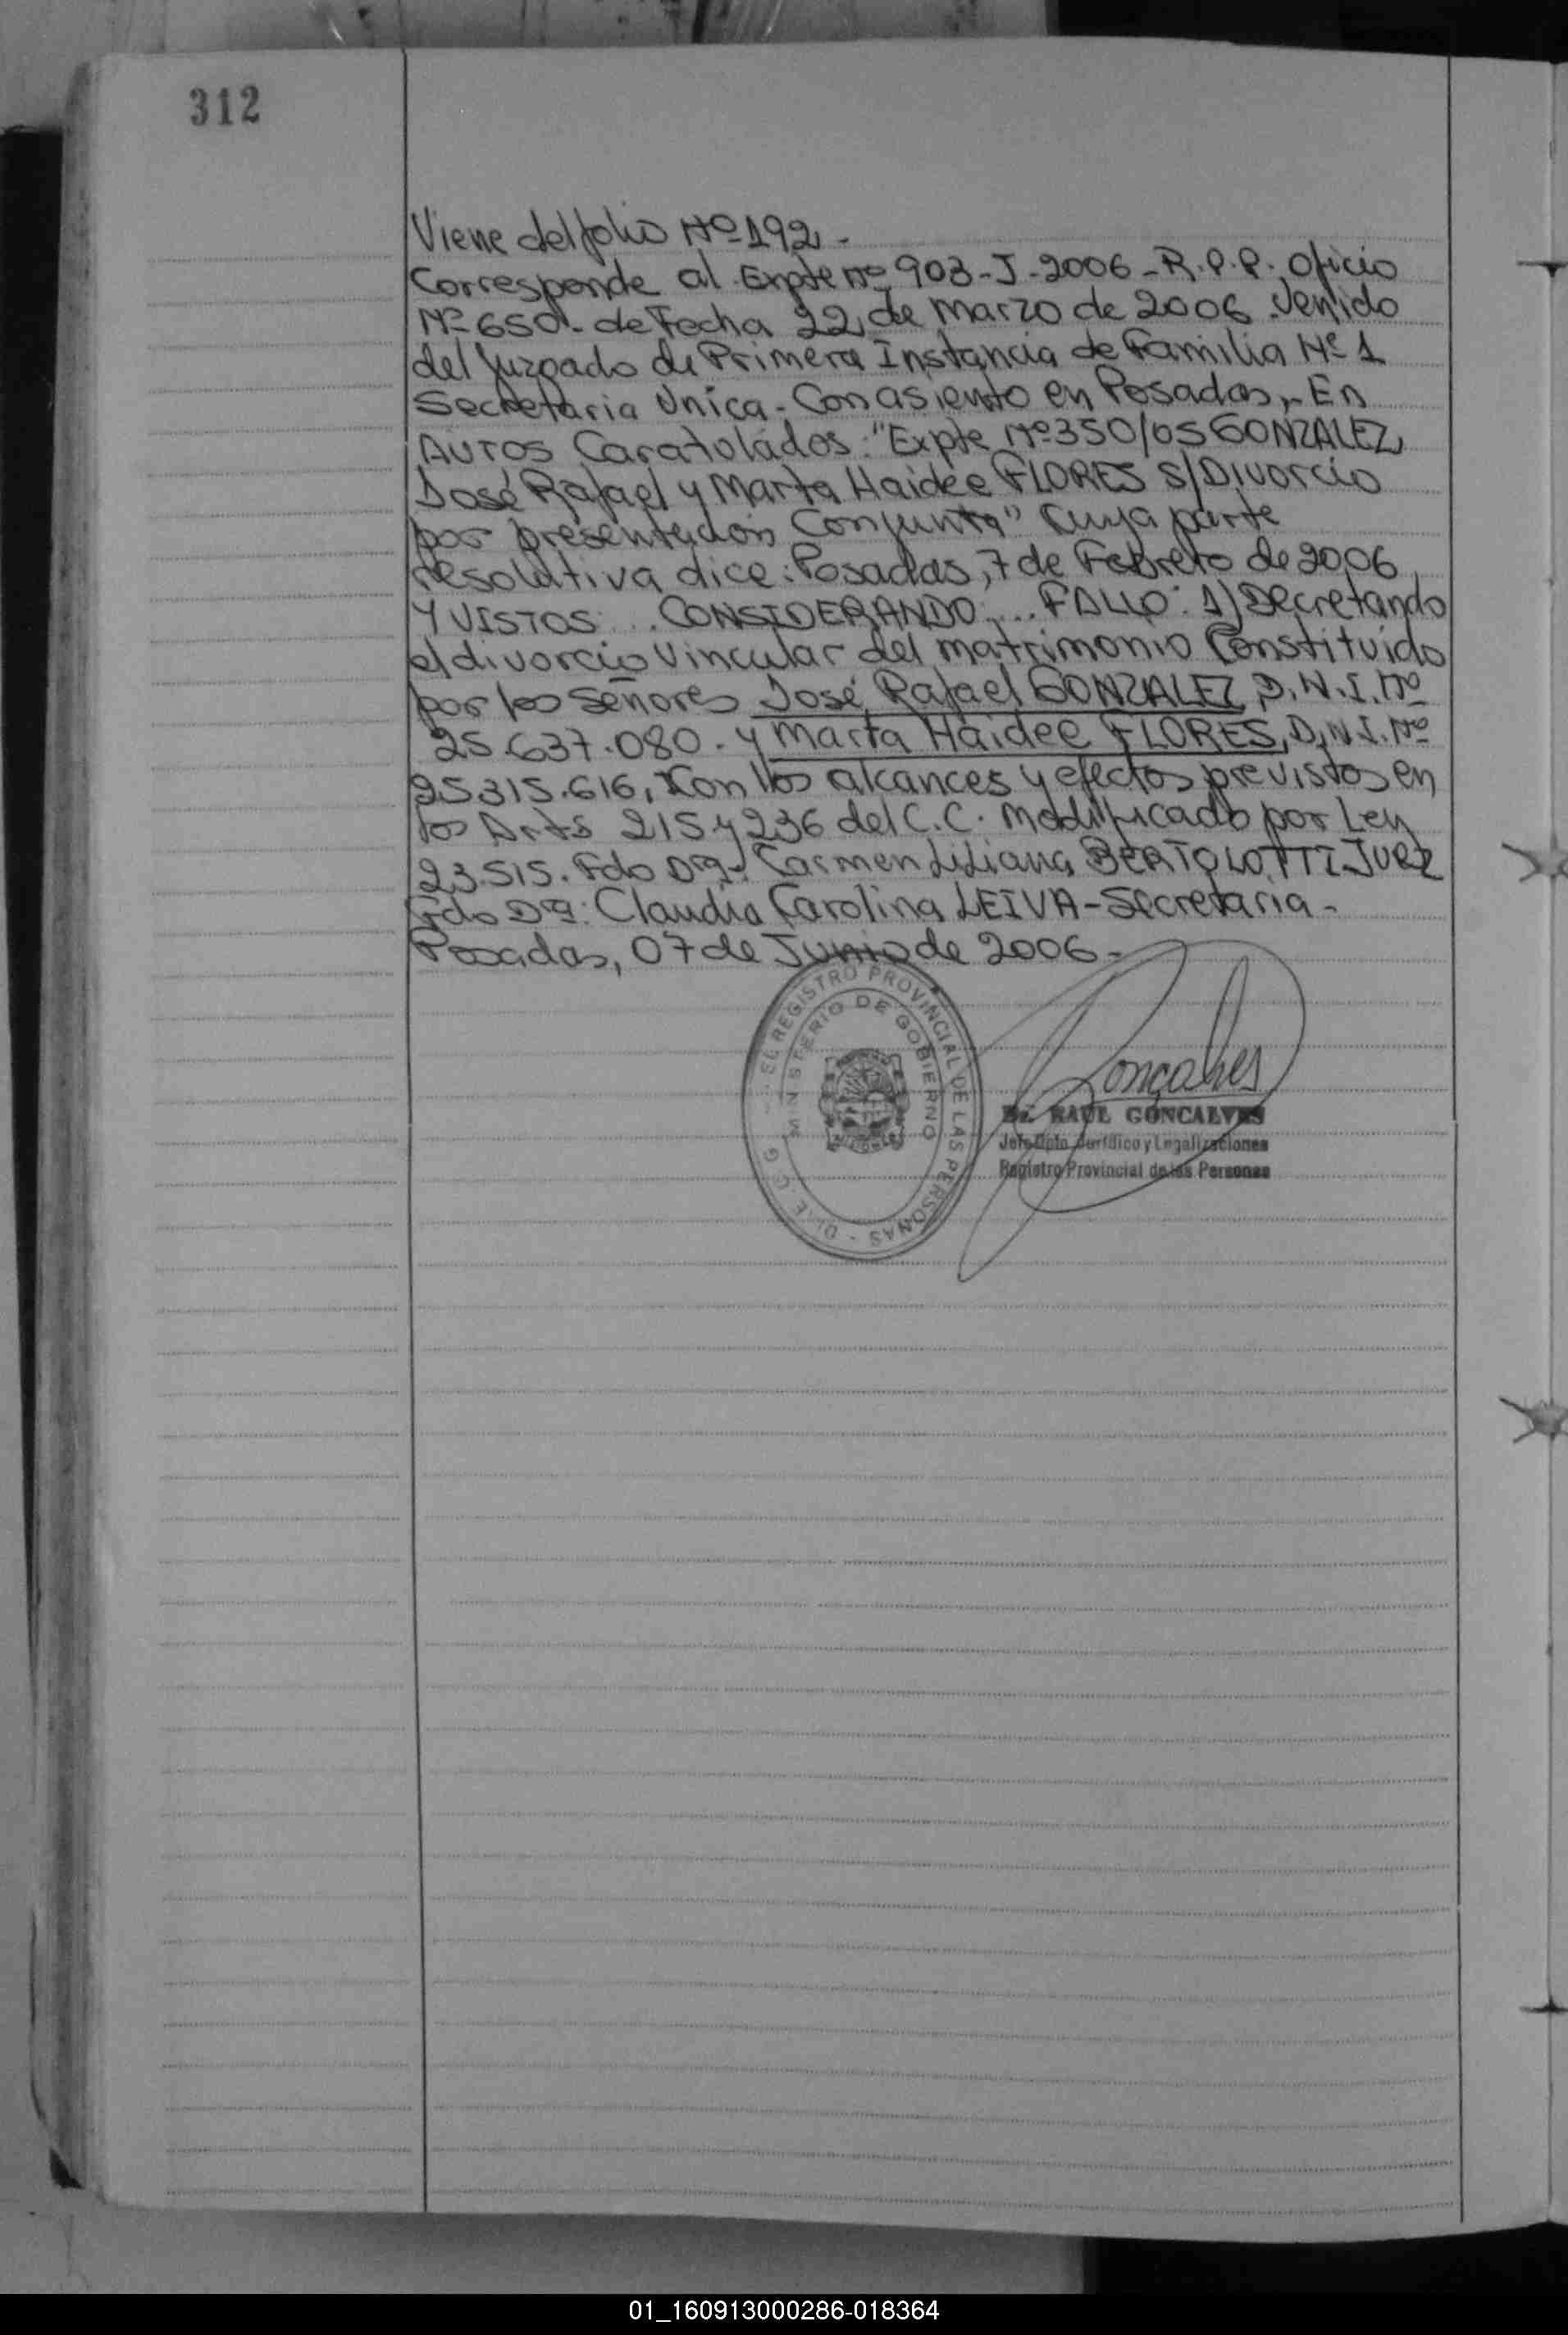 312
Viene del folio Nº 192 -
Corresponde al Expte nº 903-J-2006-R.P.P. Oficio
Nº 650 - de Fecha 22 de Marzo de 2006 Venido
del Juzgado de Primera Instancia de Familia Nº 1
Secretaria Unica - Con asiento en Posadas, - En
AUTOS Caratulados: "Expte Nº 350/05 GONZALEZ
José Rafael y Marta Haidée FLORES S/Divorcio
por presentación Conjunta" Cuya parte
resolutiva dice: Posadas, 7 de Febrero de 2006
Y VISTOS: ... CONSIDERANDO: ... FALLO: 1) Decretando
el divorcio Vincular del matrimonio Constituído
por los Señores José Rafael GONZALEZ, D.N.I. Nº
25.637.080. y Marta Haidee FLORES, D.N.I. Nº
25.315.616, con los alcances y efectos previstos en
los Arts 215 y 236 del C.C. modificado por Ley
23.515. Fdo Dra. Carmen Liliana BERTOLOTTI JUEZ
Fdo Dra: Claudia Carolina LEIVA - Secretaria -
Posadas, 07 de Junio de 2006 -
EL REGISTRO PROVINCIAL DE LAS PERSONAS -
MINISTERIO DE GOBIERNO
Gonçalves
Dr. RAUL GONCALVES
Jefe Dpto. Jurídico y Legalizaciones
Registro Provincial de las Personas
01_160913000286-018364